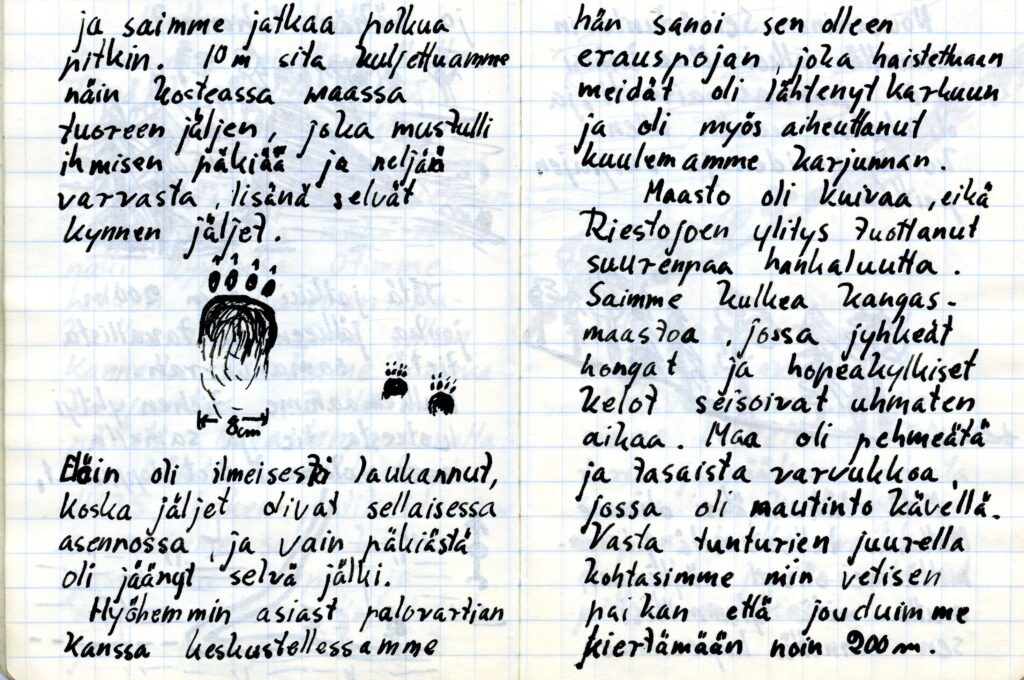 ja saimme jatkaa polkua
pitkin. 10 m sitä kuljettuamme
näin kosteassa maassa
tuoreen jäljen, joka mustutti
ihmisen päkiää ja neljää
varvasta, lisänä selvät
kynnen jäljet.
8cm
Eläin oli ilmeisesti laukannut,
koska jäljet olivat sellaisessa
asennossa, ja vain päkiästä
oli jäänyt selvä jälki.
Myöhemmin asiast palovartian
kanssa keskustellessamme
hän sanoi sen olleen
erauspojan, joka haistettuaan
meidät oli lähtenyt karkuun
ja oli myös aiheuttanut
kuulemamme karjunnan.
Maasto oli kuivaa, eikä
Riestojoen ylitys tuottanut
suurenpaa hankaluutta.
Saimme kulkea kangas-
maastoa, jossa jyhkeät
hongat ja hopeakylkiset
kelot seisoivat uhmaten
aikaa. Maa oli pehmeätä
ja tasaista varvukkoa,
jossa oli mautinto kävellä.
Vasta tunturien juurella
kohtasimme niin vetisen
paikan että jouduimme
kiertämään noin 200 m.